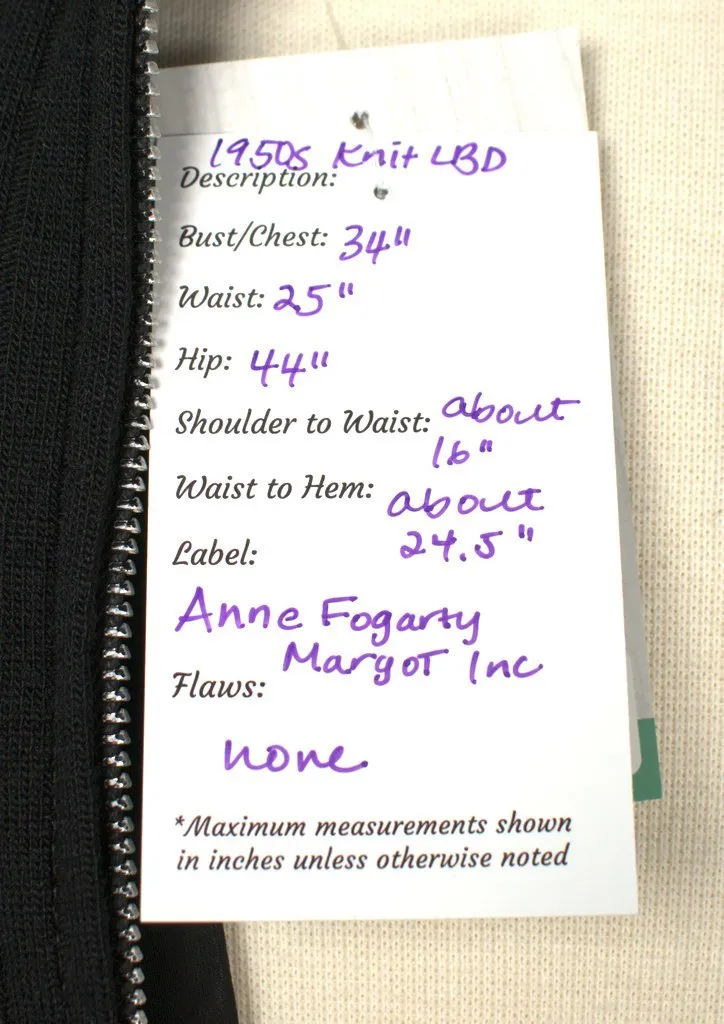 1950s Knit LBD
Description:
Bust/Chest: 34"
Waist: 25"
Hip: 44"
Shoulder to Waist: about
16"
Waist to Hem: about
24.5"
Label:
Anne Fogarty
Margot Inc
Flaws:
none.
*Maximum measurements shown
in inches unless otherwise noted